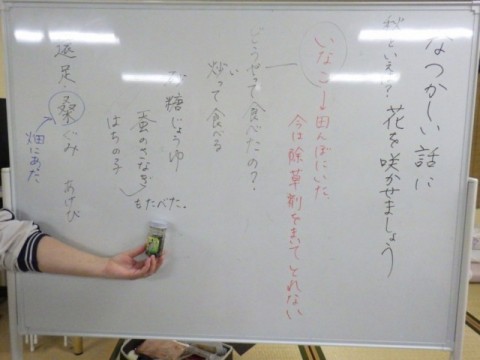 なつかしい話に
花を咲かせましょう
秋といえば?
いなご→田んぼにいた
今は除草剤をまいてとれない
どうやって食べたの?
炒って食べる
砂糖じょうゆ
蚕のさなぎ
はちの子
もたべた。
遠足・桑ぐみ あけび
畑にあた